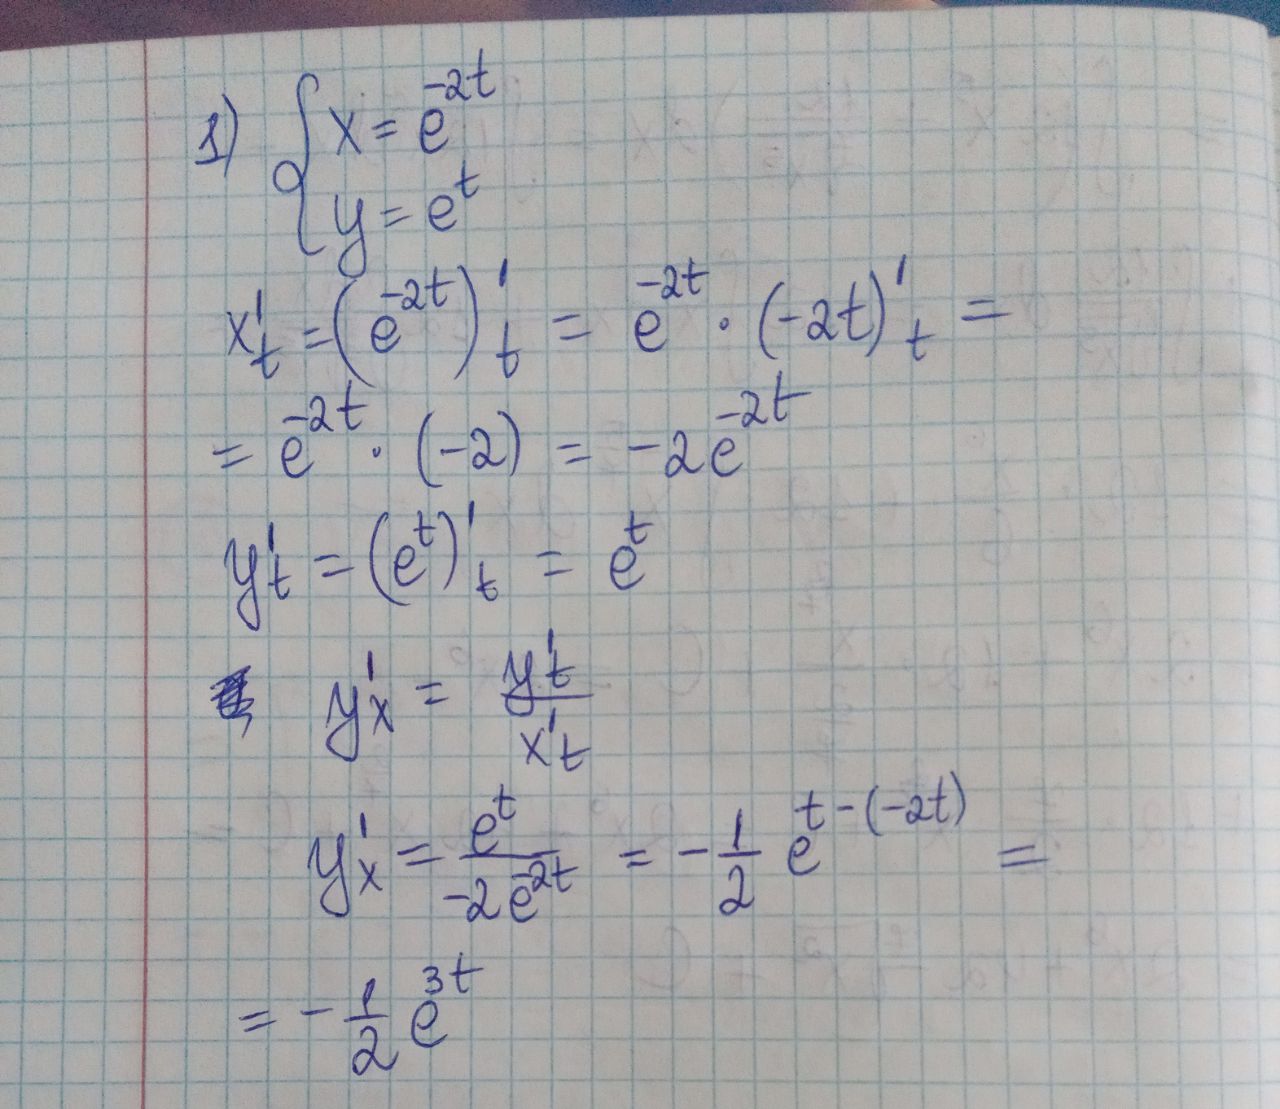 1) { x = e^{-2t}
y = e^{t}
x'_t = (e^{-2t})'_t = e^{-2t} · (-2t)'_t =
= e^{-2t} · (-2) = -2e^{-2t}
y'_t = (e^{t})'_t = e^{t}
y'_x = \frac{y'_t}{x'_t}
y'_x = \frac{e^{t}}{-2e^{-2t}} = -\frac{1}{2} e^{t-(-2t)} =
= -\frac{1}{2} e^{3t}